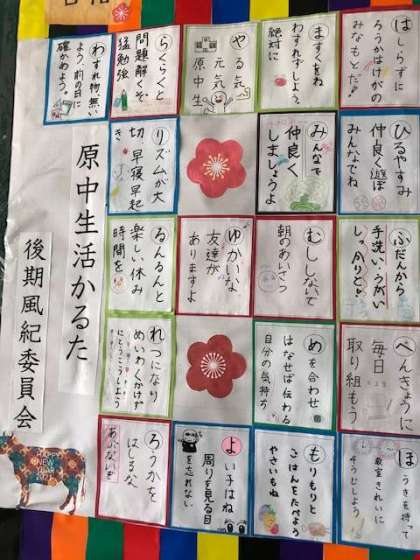 はしらずに
ろうかはけがの
みなもとだ!
ますくをね
わすれずしよう
絶対に
やる気
元気
原中生
らくらくと
問題解くぞ
猛勉強
わすれ物、無い
よう、前の日に
確かめよう。
ひるやすみ
仲良く遊ぼ
みんなでね
みんなで
仲良く
しましょうよ
リズムが大
切、早寝早起
き
ふだんから
手洗い、うがい
しっかりと
むししないで
朝のあいさつ
ゆかいな
友達が
ありますよ
るんるんと
楽しい休み
時間を
べんきょうに
毎日
取り組もう
めを合わせ
はなせば伝わる
自分の気持ち
れつになり
めいわくかけず
とうこうしよう
ほうきを持って
教室きれいに
そうじしよう
もりもりと
ごはんをたべよう
やさいもね
よい子はね
周りを見る目
を忘れない
ろうかを
はしるな
あぶないぞ
原中生活かるた
後期風紀委員会
HAPPY
NEW
YEAR
2021